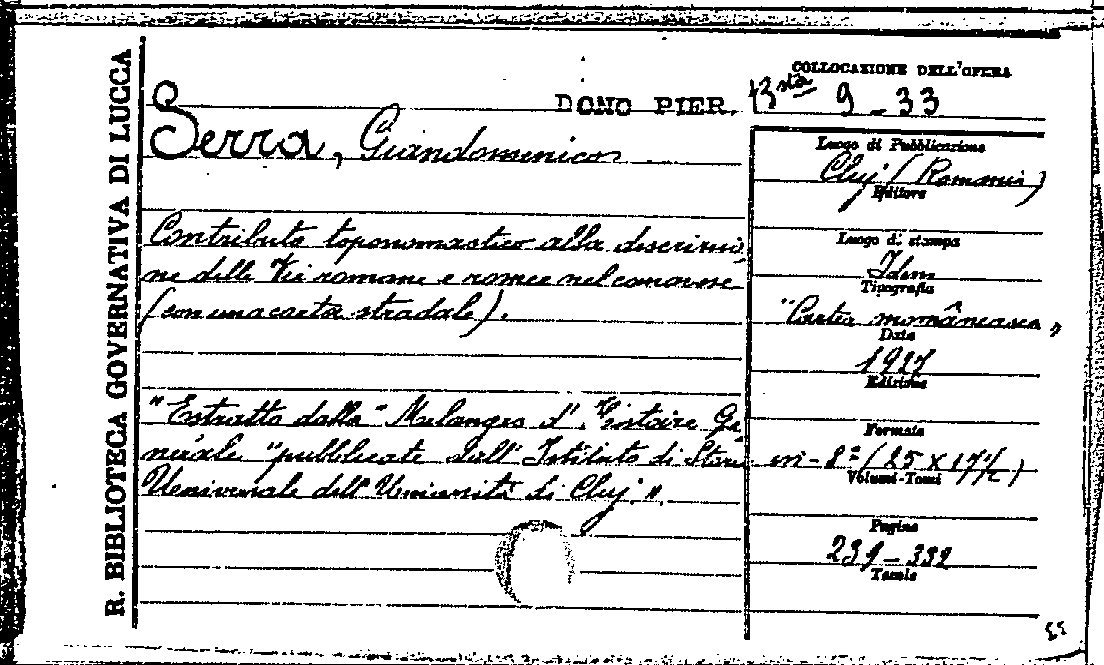 R. BIBLIOTECA GOVERNATIVA DI LUCCA
DONO PIER.
COLLOCAZIONE DELL'OPERA
13sta 9 - 33
Serra, Giandomenico
Contributo toponomastico alla descrizio-
ne delle Vie romane e romee nel canavese
(con una carta stradale).
"Estratto dalle "Melanges d'Histoire Gé-
nérale" pubblicate dall'Istituto di Storia
Universale dell'Università di Cluj".
Luogo di Pubblicazione
Cluj (Romania)
Editore
Luogo di stampa
Idem
Tipografia
"Cartea românească"
Data
1927
Edizione
Formato
in-8° (25 x 17½)
Volumi-Tomi
Pagine
239-332
Tavole